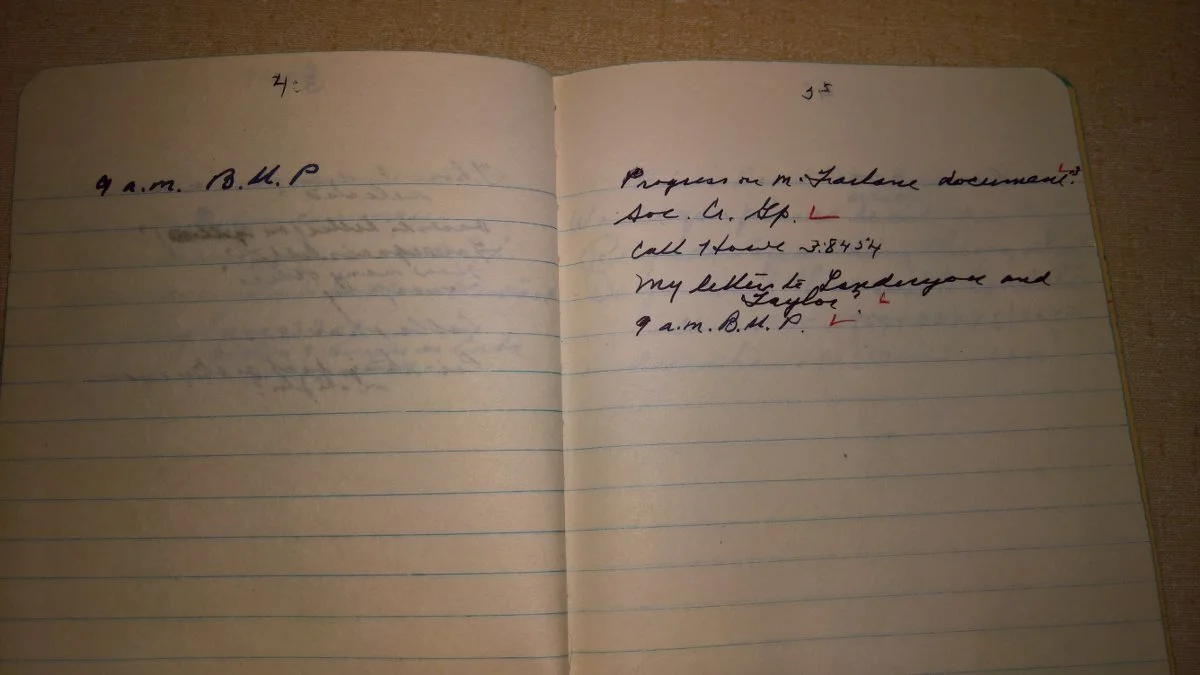 9 a.m. B.U.P
Progress on McFarlane document?
Soc. Cr. Gp.
Call Howe 3.8454
My letter to and
Taylor?
9 a.m. B.U.P.